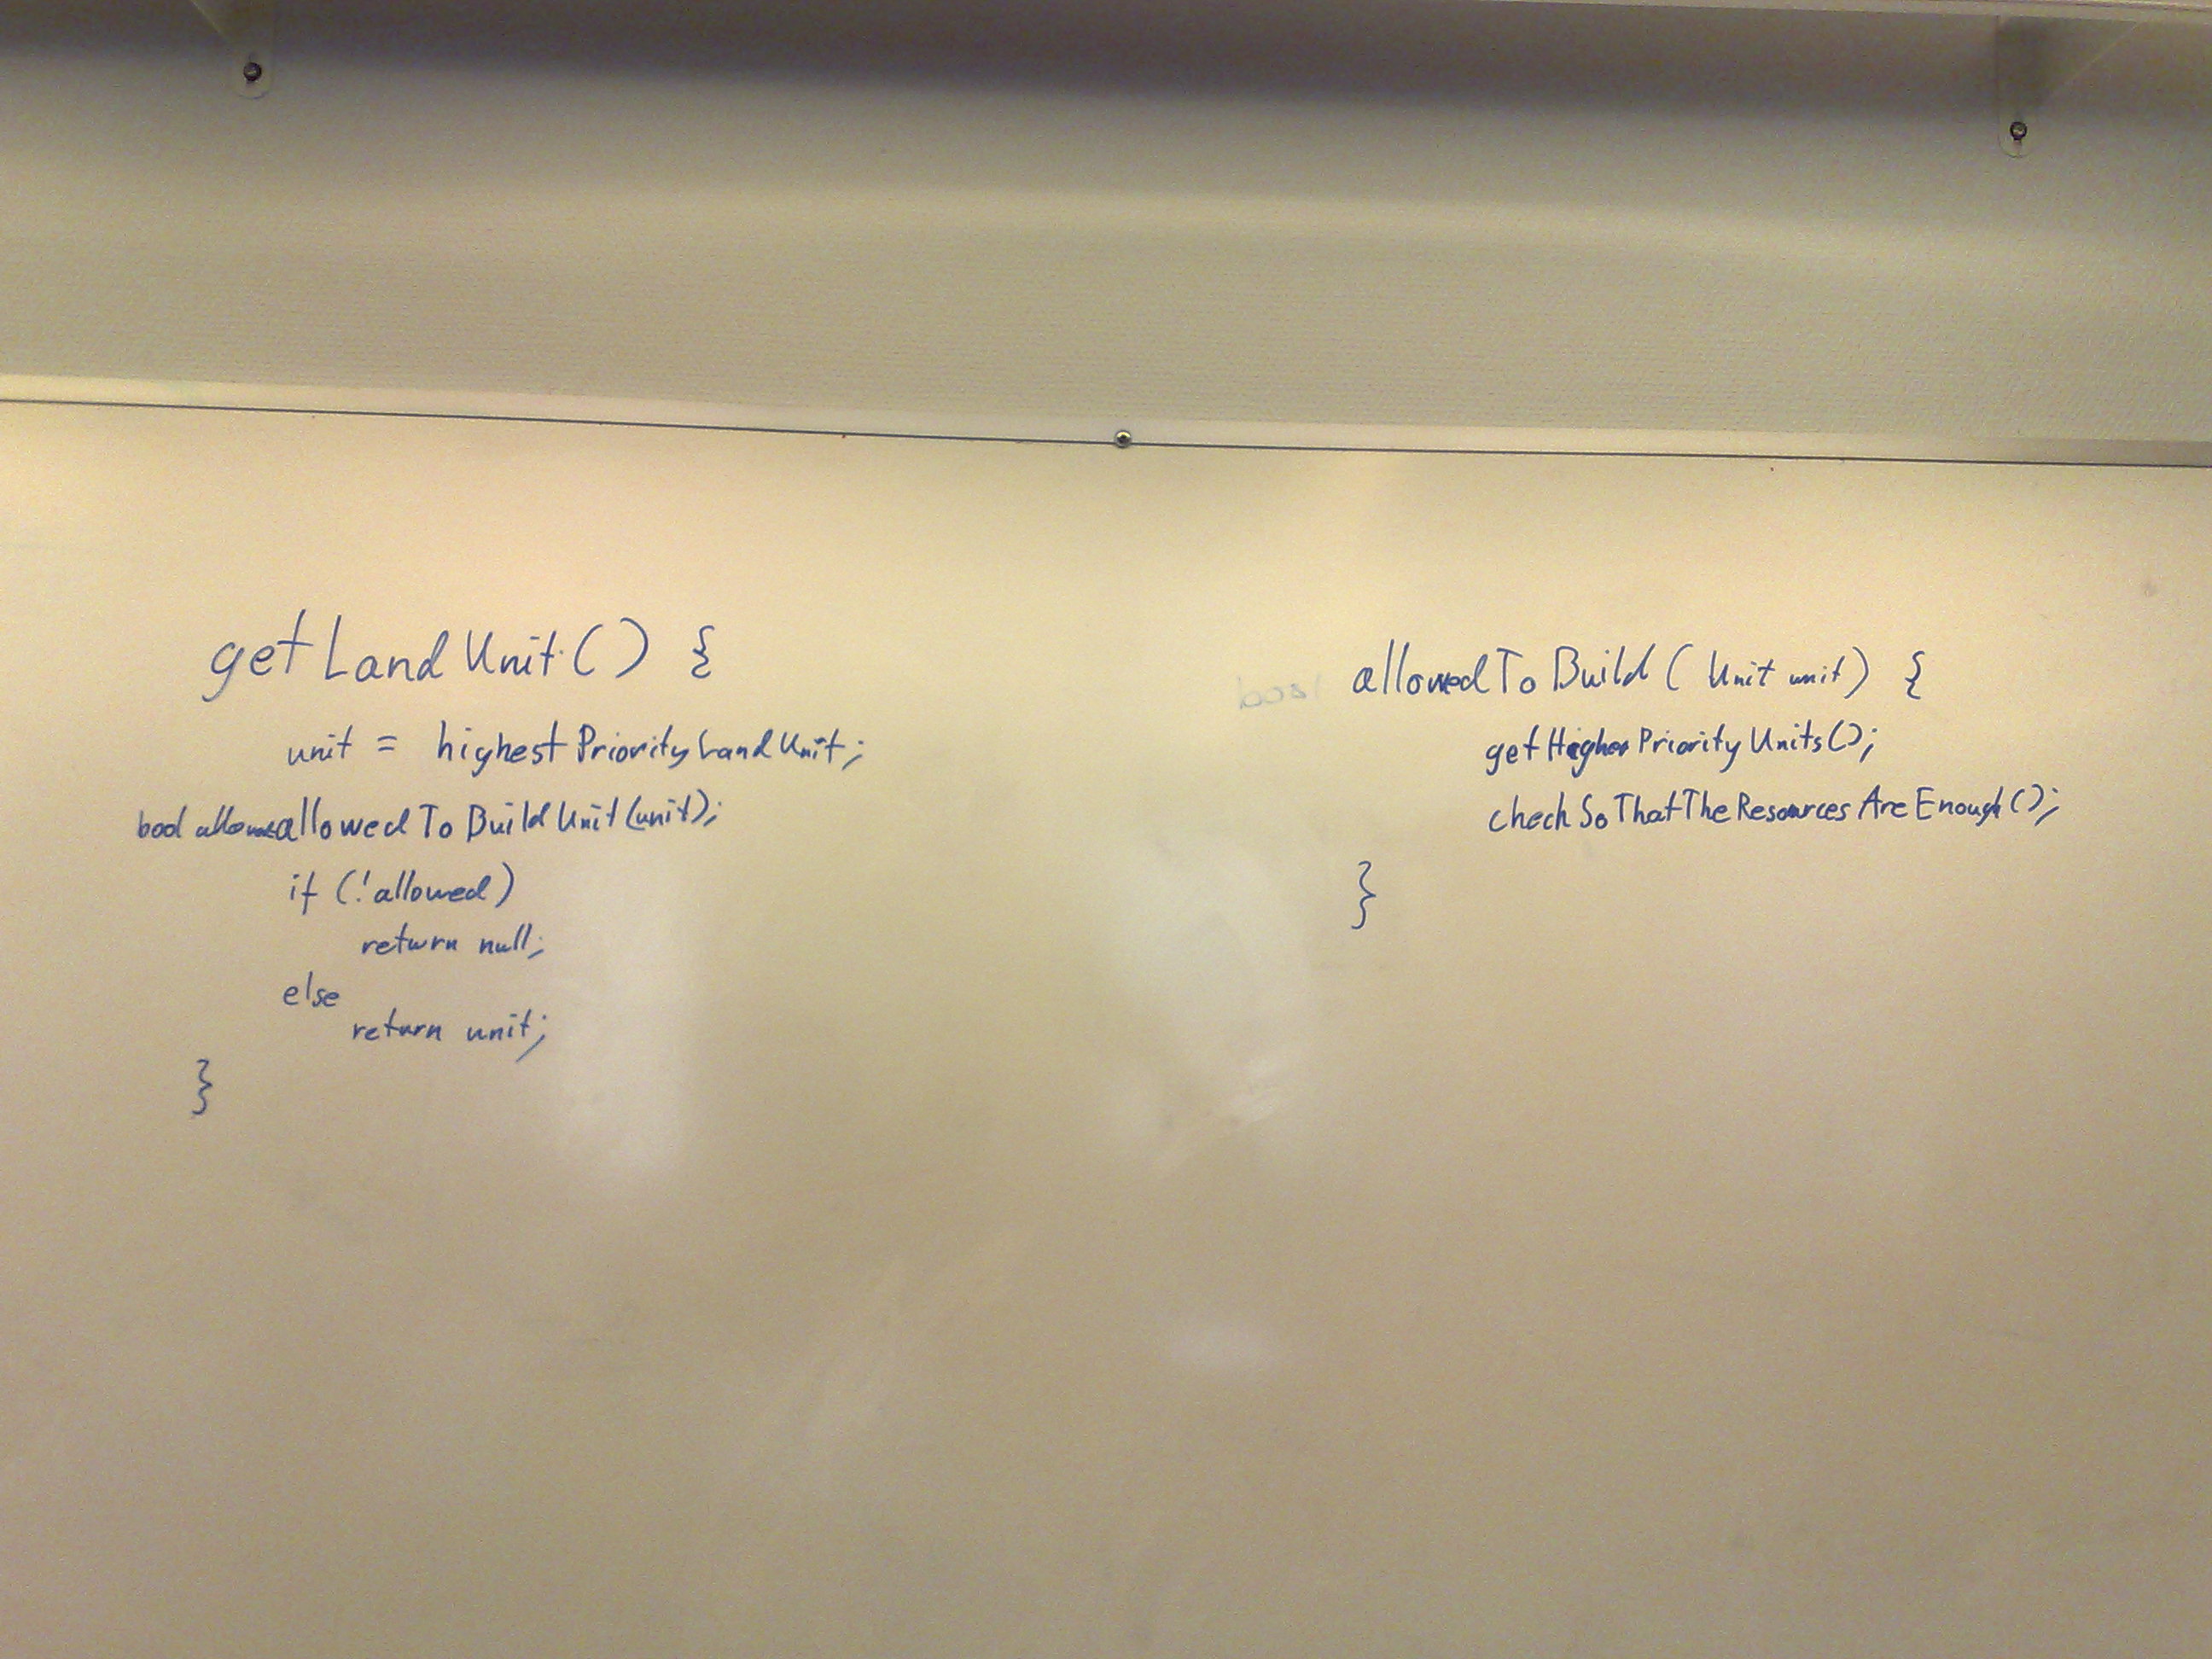 getLandUnit() {
unit = highestPriorityLandUnit;
bool allowed=allowedToBuildUnit(unit);
if (!allowed)
return null;
else
return unit;
}
allowedToBuild(Unit unit) {
getHigherPriorityUnits();
checkSoThatTheResourcesAreEnough();
}